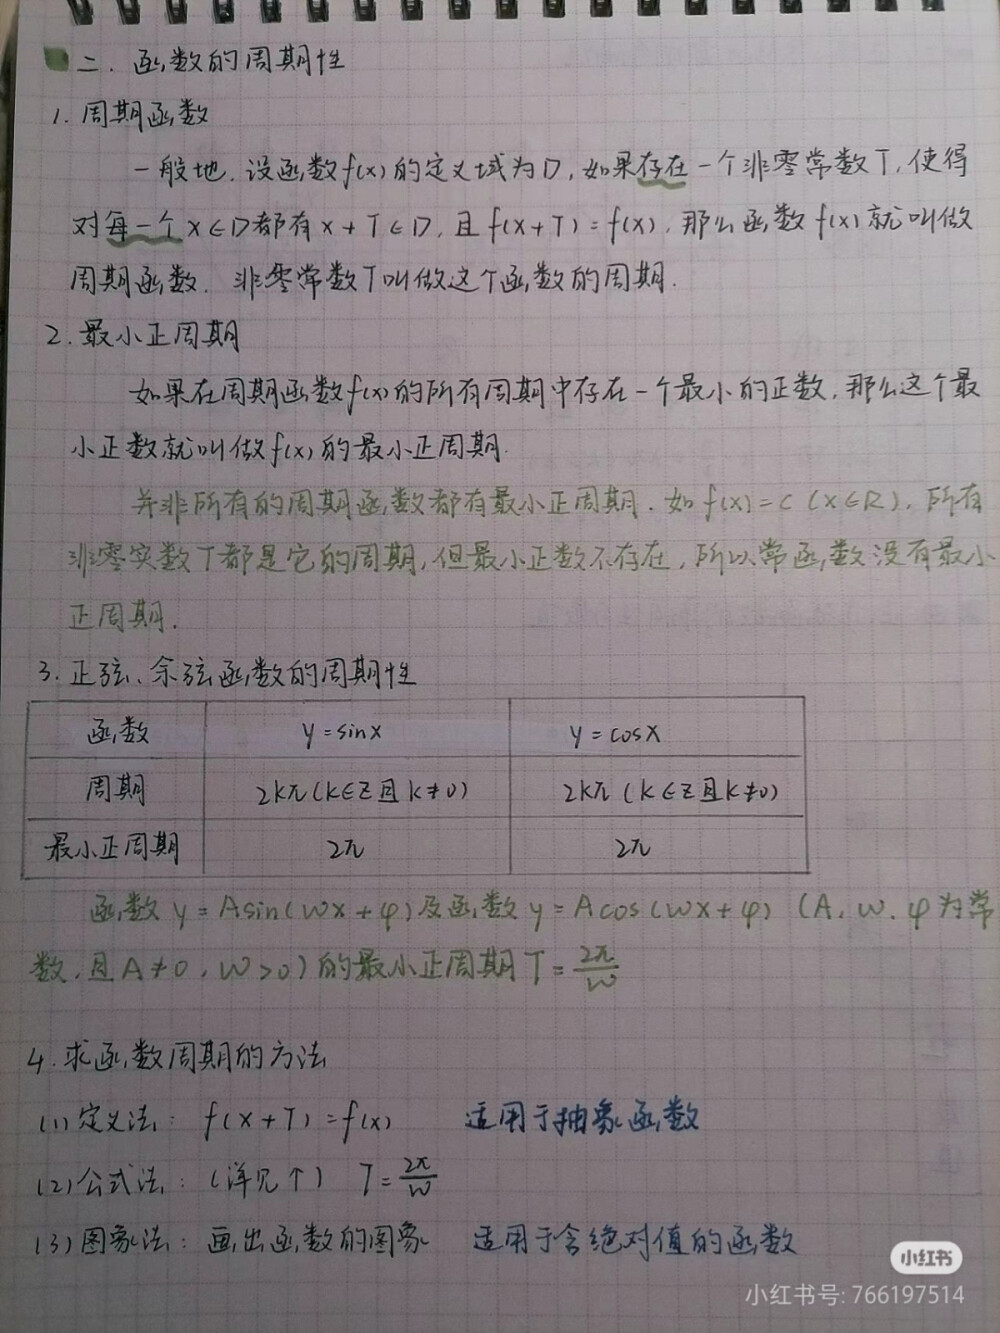 二.函数的周期性
1.周期函数
一般地.设函数f(x)的定义域为D,如果存在一个非零常数T,使得
对每一个x∈D都有x+T∈D,且f(x+T)=f(x),那么函数f(x)就叫做
周期函数.非零常数T叫做这个函数的周期.
2.最小正周期
如果在周期函数f(x)的所有周期中存在一个最小的正数,那么这个最
小正数就叫做f(x)的最小正周期.
并非所有的周期函数都有最小正周期.如f(x)=C(x∈R),所有
非零实数T都是它的周期,但最小正数不存在,所以常函数没有最小
正周期.
3.正弦、余弦函数的周期性
函数 y=sinx y=cosx
周期 2kπ(k∈Z且k≠0) 2kπ(k∈Z且k≠0)
最小正周期 2π 2π
函数y=Asin(wx+φ)及函数y=Acos(wx+φ)(A、w、φ为常
数,且A≠0,w>0)的最小正周期T=2π/w
4.求函数周期的方法
(1)定义法:f(x+T)=f(x) 适用于抽象函数
(2)公式法:(详见↑) T=2π/w
(3)图象法:画出函数的图象 适用于含绝对值的函数
小红书
小红书号:766197514